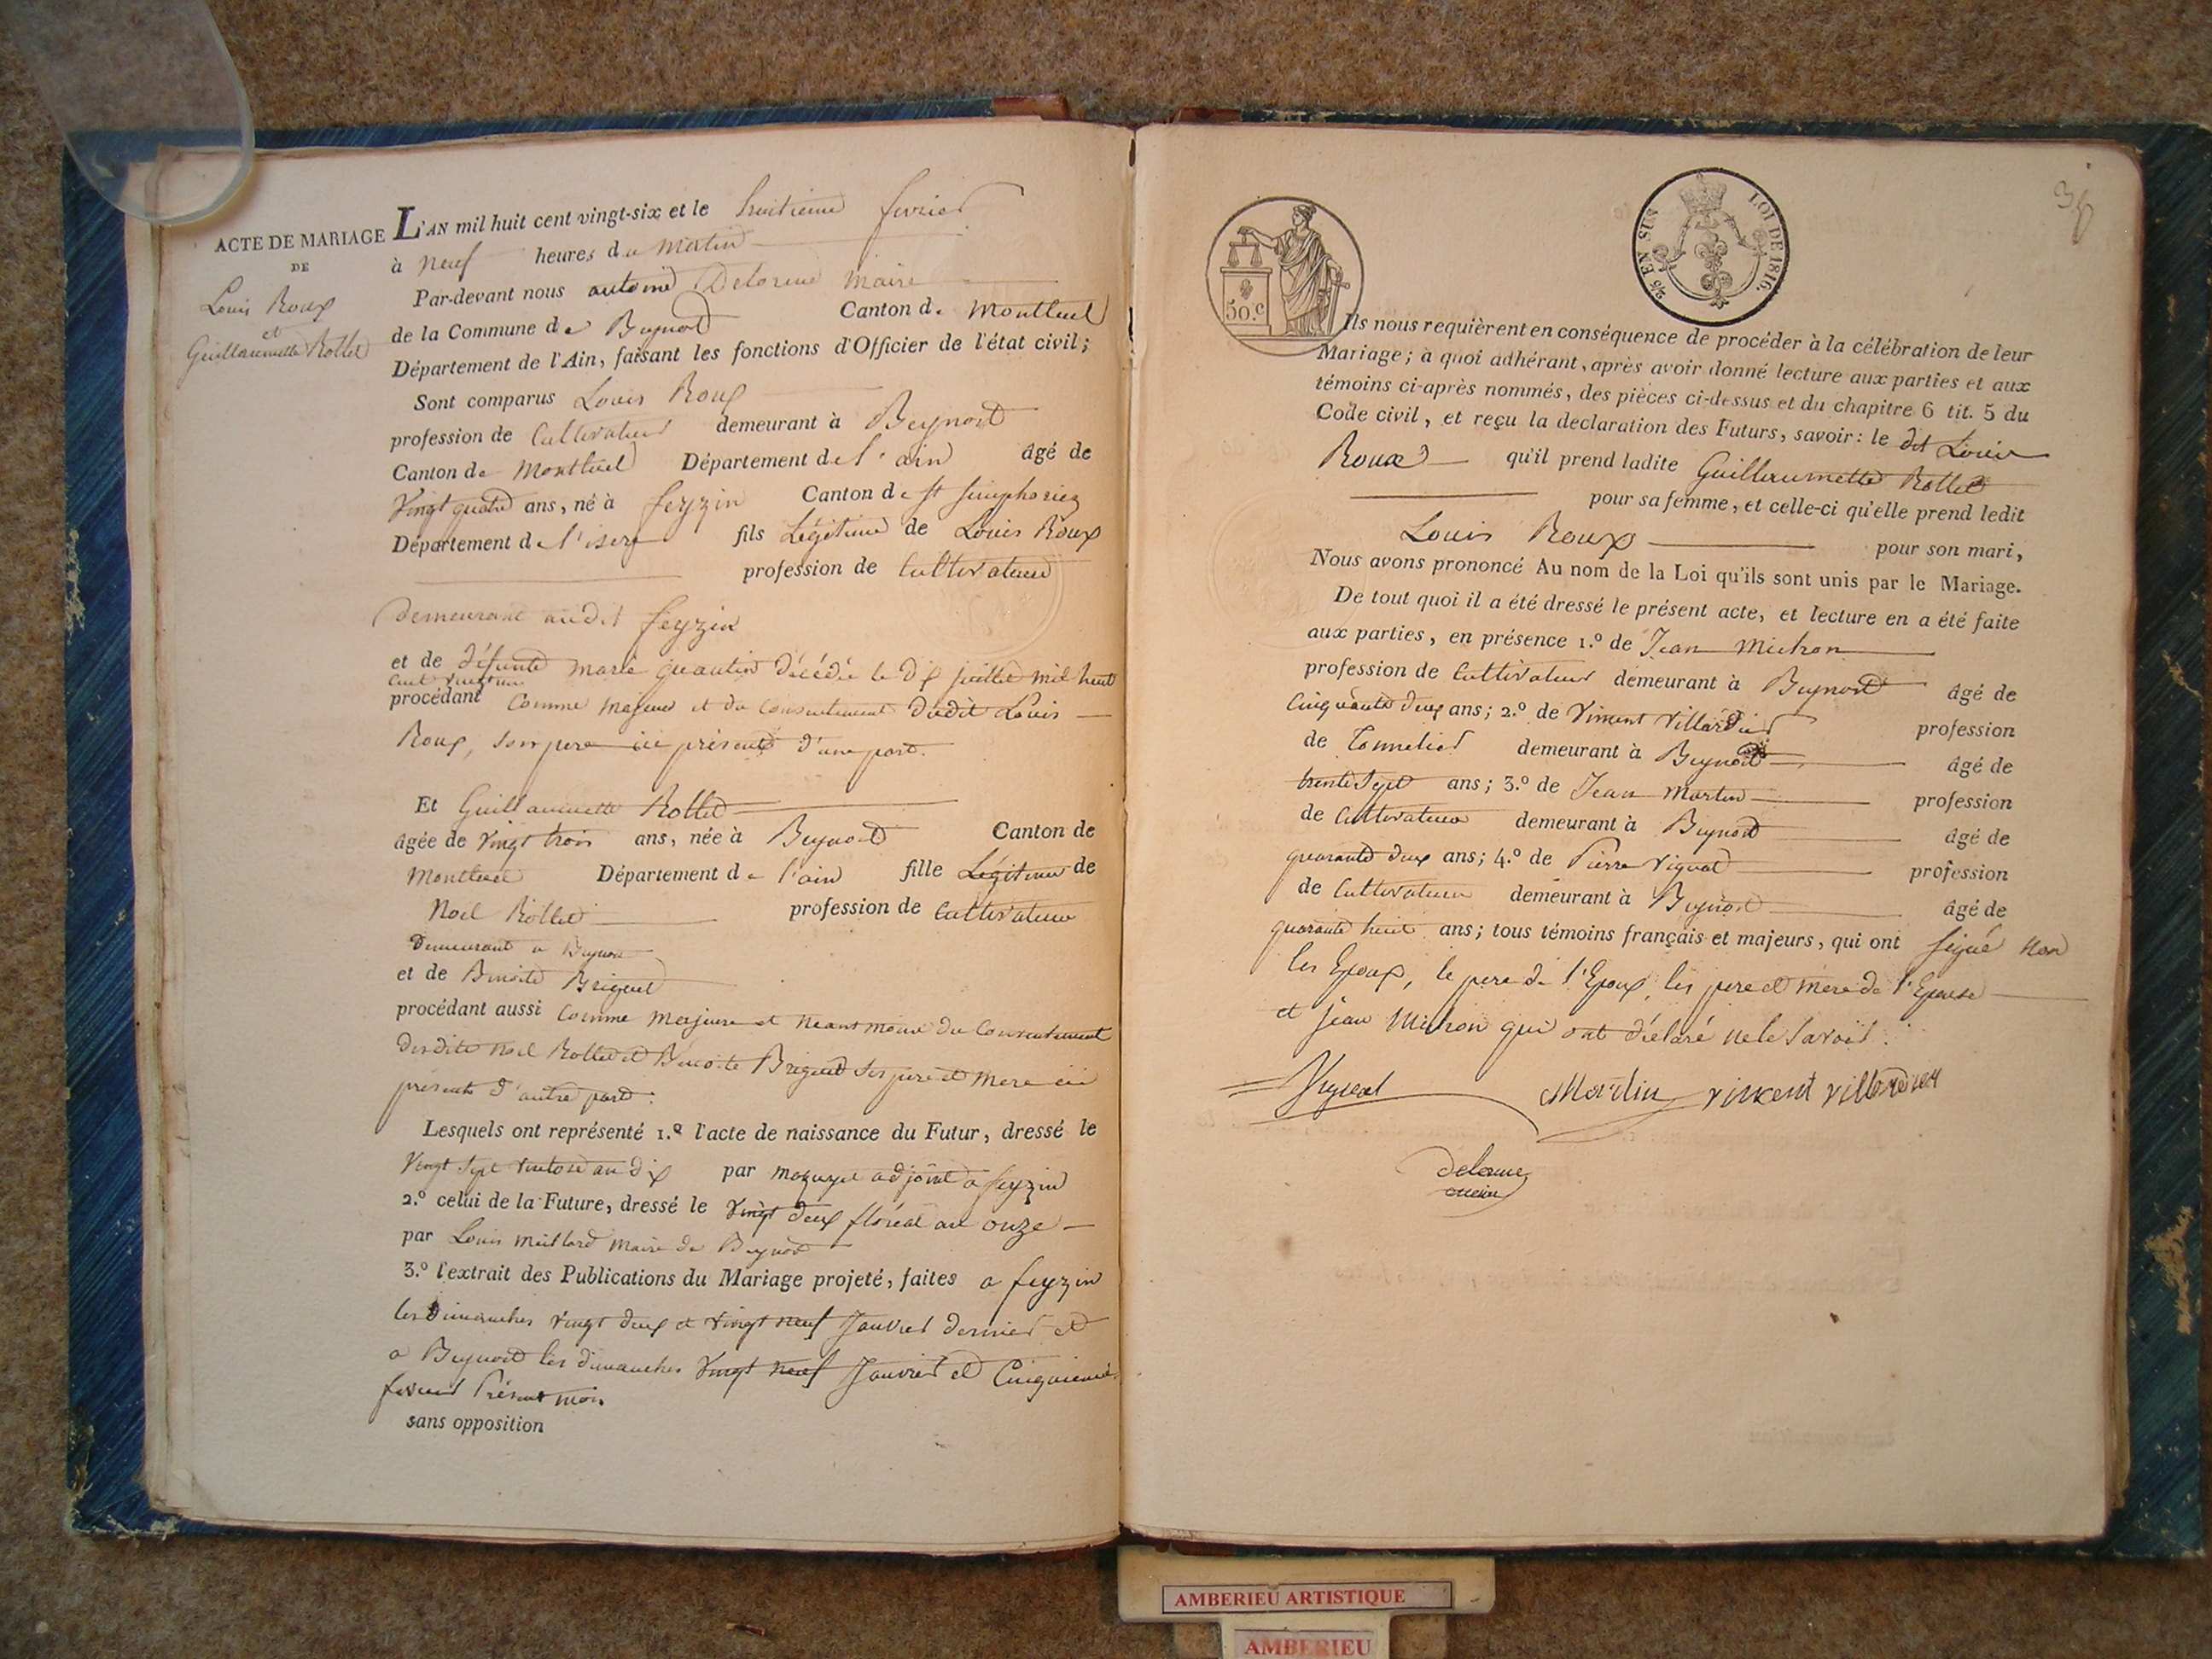 ACTE DE MARIAGE
DE
Louis Roux
et
Guillaumette Rollet
L'AN mil huit cent vingt-six et le huitieme fevrier
à neuf heures du matin
Par-devant nous antoine Delorme maire
de la Commune de Beynost Canton de Montluel
Département de l'Ain, faisant les fonctions d'Officier de l'état civil;
Sont comparus Louis Roux
profession de Cultivateur demeurant à Beynost
Canton de Montluel Département de l'ain âgé de
Vingt quatre ans, né à feyzin Canton de St simphorien
Département de l'isere fils Légitime de Louis Roux
profession de Cultivateur
demeurant audit feyzin
et de défunte marie quantin décédée le dix juillet mil huit
cent vingt un
procédant comme majeur et du consentement dudit Louis
Roux, son pere ici présent d'une part.
Et Guillaumette Rollet
âgée de vingt trois ans, née à Beynost Canton de
Montluel Département de l'ain fille Légitime de
Noel Rollet profession de cultivateur
demeurant a Beynost
et de Benoite Briguet
procédant aussi comme majeure et neant moins du consentement
desdits noel Rollet et Benoite Briguet ses pere et mere ici
présents d'autre part.
Lesquels ont représenté 1.º l'acte de naissance du Futur, dressé le
Vingt sept ventose an dix par mozuyel adjoint a feyzin
2.º celui de la Future, dressé le vingt deux floréal an onze
par Louis meillard maire de Beynost
3.º l'extrait des Publications du Mariage projeté, faites a feyzin
les dimanches vingt deux et vingt neuf Janvier dernier et
a Beynost les dimanches vingt neuf Janvier et Cinquieme
fevrier Présent mois
sans opposition
36
50.c
2/5 EN SUS
LOI DE 1816.
Ils nous requièrent en conséquence de procéder à la célébration de leur
Mariage; à quoi adhérant, après avoir donné lecture aux parties et aux
témoins ci-après nommés, des pièces ci-dessus et du chapitre 6 tit. 5 du
Code civil, et reçu la declaration des Futurs, savoir: le dit Louis
Roux qu'il prend ladite Guillaumette Rollet
pour sa femme, et celle-ci qu'elle prend ledit
Louis Roux pour son mari,
Nous avons prononcé Au nom de la Loi qu'ils sont unis par le Mariage.
De tout quoi il a été dressé le présent acte, et lecture en a été faite
aux parties, en présence 1.º de Jean michon
profession de Cultivateur demeurant à Beynost âgé de
Cinquante deux ans; 2.º de Vincent Villardier profession
de Tonnelier demeurant à Beynost âgé de
trente sept ans; 3.º de Jean martin profession
de Cultivateur demeurant à Beynost âgé de
quarante deux ans; 4.º de Pierre vignat profession
de Cultivateur demeurant à Beynost âgé de
quarante huit ans; tous témoins français et majeurs, qui ont signé non
les Epoux, le pere de l'Epoux, les pere et mere de l'Epouse
et jean Michon qui ont déclaré ne le savoir.
Martin vincent villardier
delorme
maire
AMBERIEU ARTISTIQUE
AMBERIEU